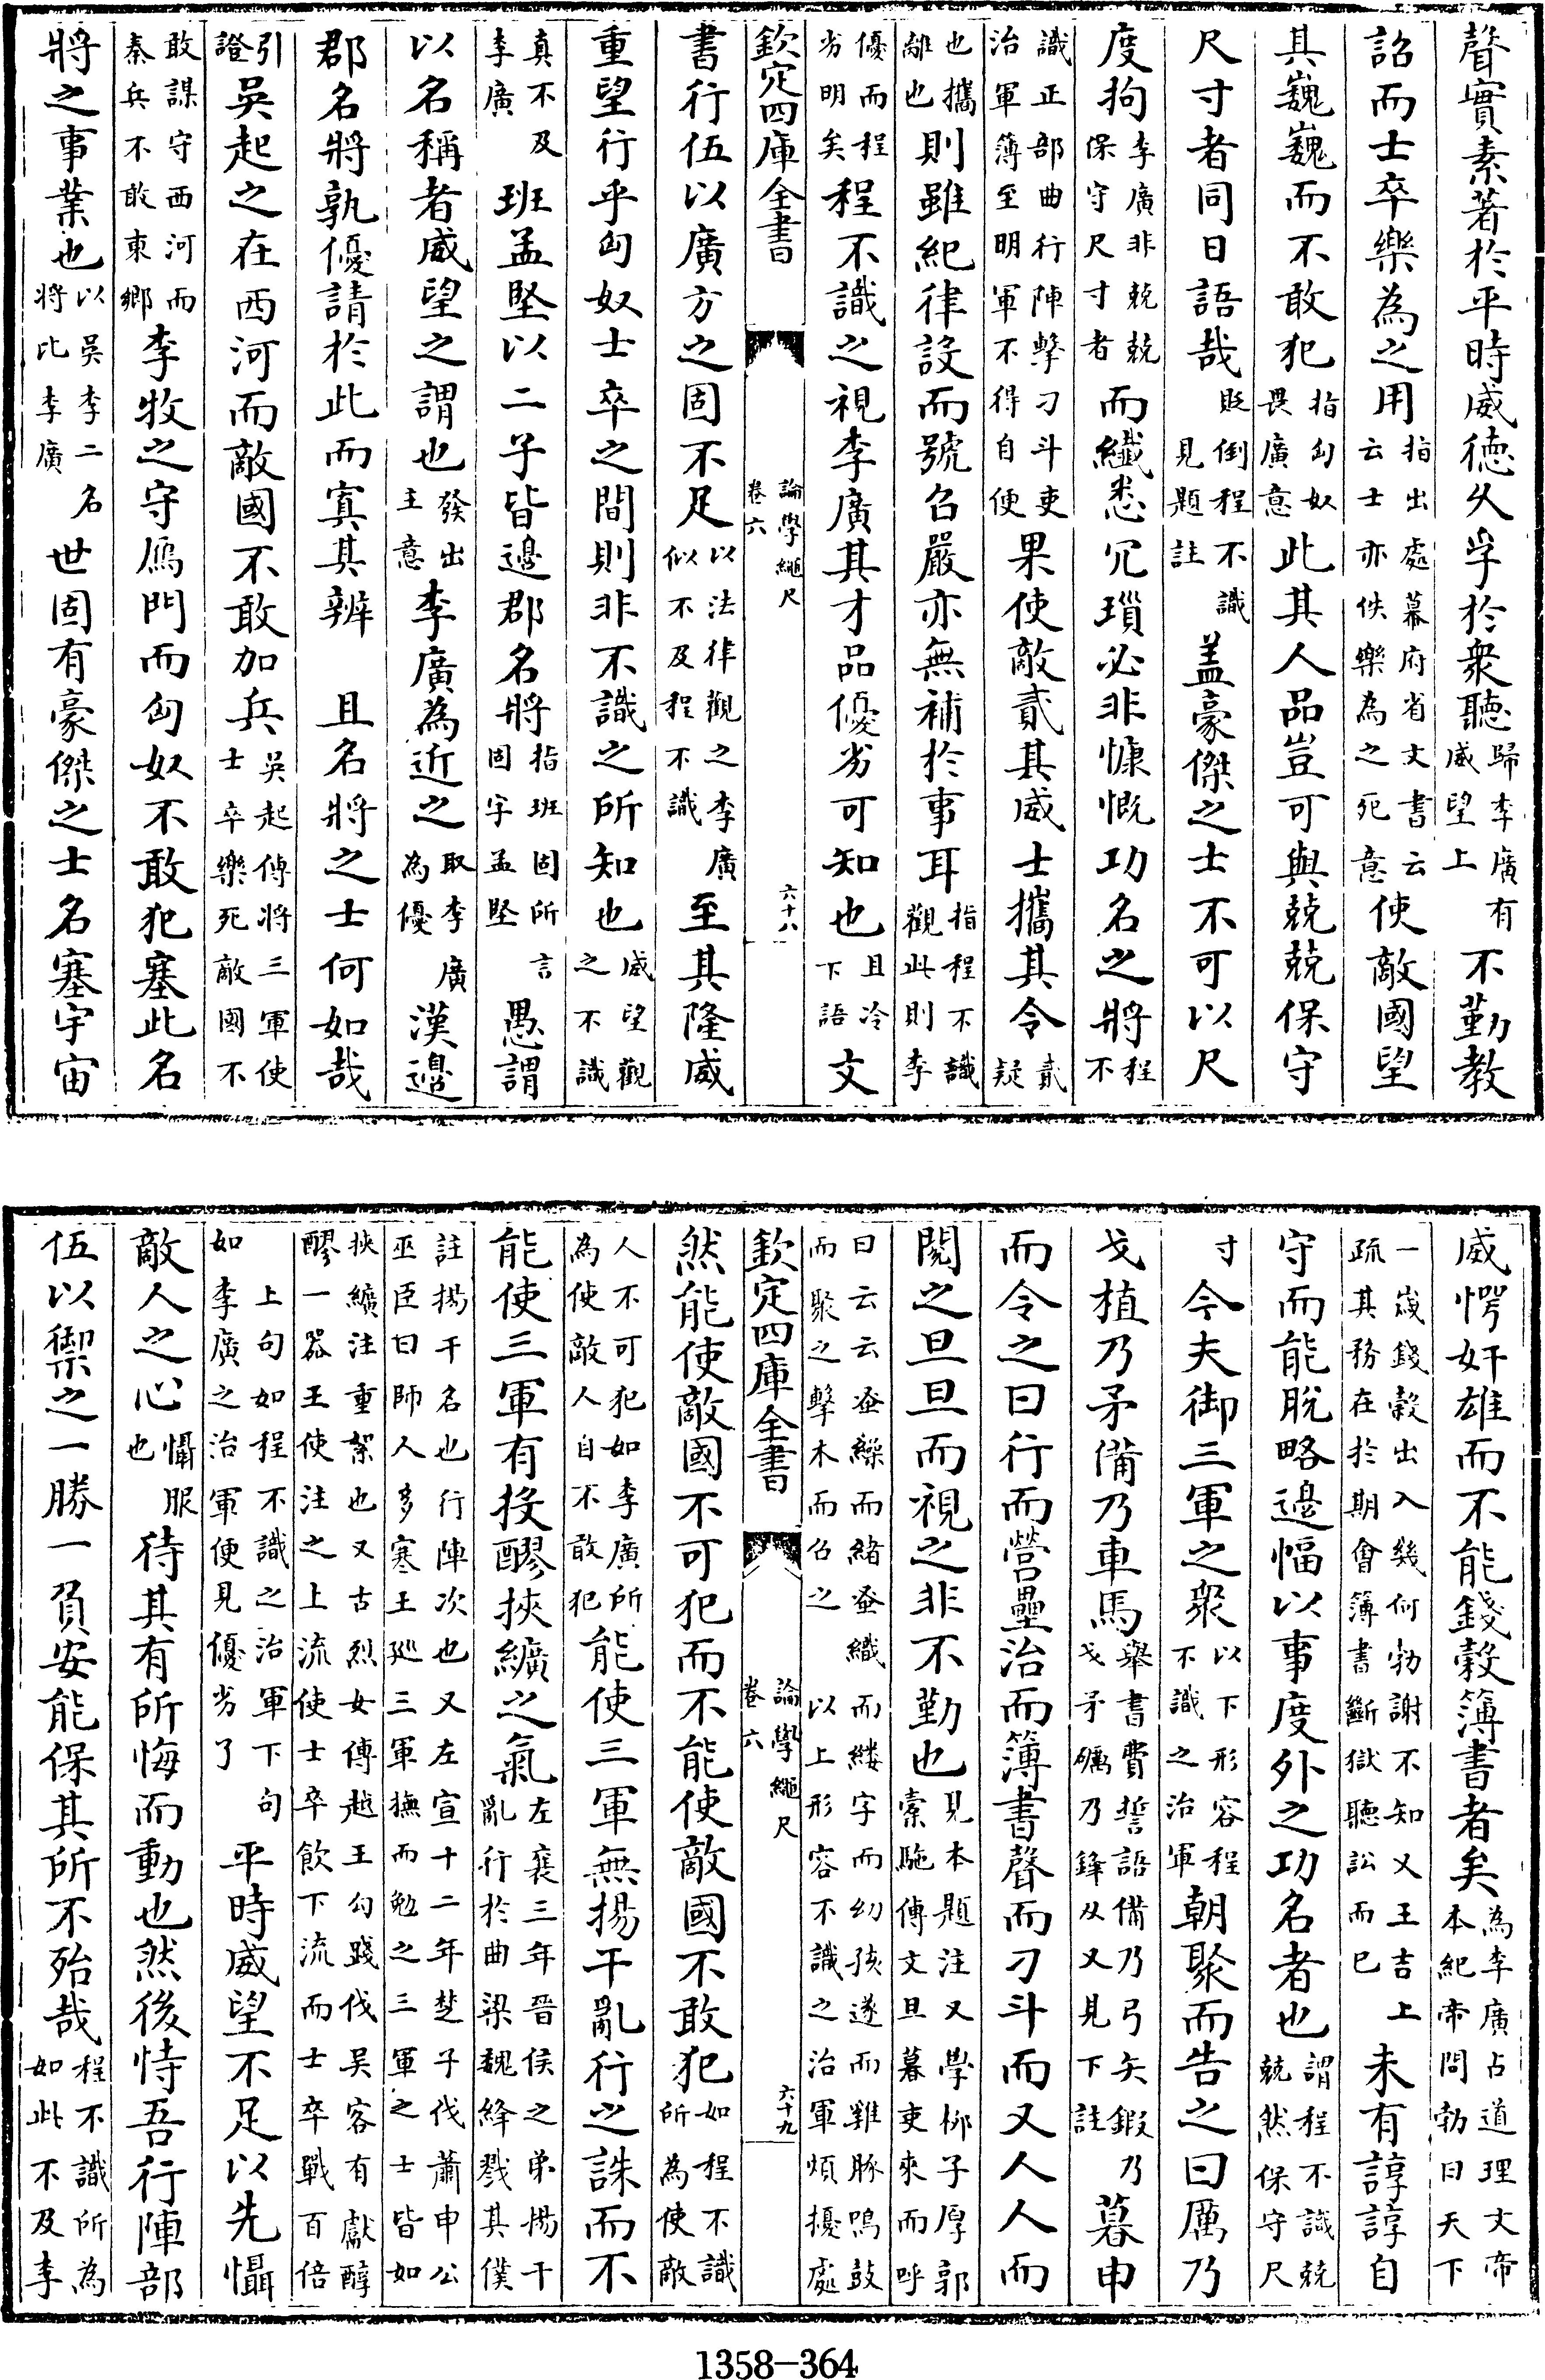 聲實素著於平時威德久孚於衆聽歸李廣有威望上不勤教
詔而士卒樂為之用指出處幕府省文書云云士亦佚樂為之死意使敵國望
其巍巍而不敢犯指匈奴畏廣意此其人品豈可與兢兢保守
尺寸者同日語哉貶倒程不識見題註盖豪傑之士不可以尺
度拘李廣非兢兢保守尺寸者而纎悉冗瑣必非慷慨功名之將程不
識正部曲行陣擊刁斗吏治軍簿至明軍不得自便果使敵貳其威士攜其令貳疑
也攜離也則雖紀律設而號召嚴亦無補於事耳指程不識觀此則李
優而程劣明矣程不識之視李廣其才品優劣可知也且冷下語文
欽定四庫全書 論學繩尺 卷六 六十八
書行伍以廣方之固不足以法律觀之李廣似不及程不識至其隆威
重望行乎匈奴士卒之間則非不識之所知也威望觀之不識
真不及李廣班孟堅以二子皆邊郡名將指班固所言固字孟堅愚謂
以名稱者威望之謂也發出主意李廣為近之取李廣為優漢邊
郡名將孰優請於此而寘其辨 且名將之士何如哉
引證吳起之在西河而敵國不敢加兵吳起傳將三軍使士卒樂死敵國不
敢謀守西河而秦兵不敢東鄉李牧之守鴈門而匈奴不敢犯塞此名
將之事業也以吳李二名將比李廣世固有豪傑之士名塞宇宙
威愕奸雄而不能錢穀簿書者矣為李廣占道理文帝本紀帝問勃曰天下
一嵗錢穀出入幾何勃謝不知又王吉上疏其務在於期會簿書斷獄聽訟而已未有諄諄自
守而能脫略邊幅以事度外之功名者也謂程不識兢兢然保守尺
寸今夫御三軍之衆以下形容程不識之治軍朝聚而告之曰厲乃
戈植乃矛備乃車馬舉書費誓語備乃弓矢鍜乃戈矛礪乃鋒从又見下註暮申
而令之曰行而營壘治而簿書聲而刁斗而又人人而
閱之旦旦而視之非不勤也見本題注又學栁子厚郭索駞傳文旦暮吏來而呼
曰云云蚤繰而緒蚤織而縷字而幼孩遂而雞豚鳴鼓而聚之擊木而召之以上形容不識之治軍煩擾處
欽定四庫全書 論學繩尺 卷六 六十九
然能使敵國不可犯而不能使敵國不敢犯如程不識所為使敵
人不可犯如李廣所為使敵人自不敢犯能使三軍無揚干亂行之誅而不
能使三軍有投醪挾纊之氣左襄三年晉侯之弟揚干亂行於曲梁魏絳戮其僕
註揚干名也行陣次也又左宣十二年楚子伐蕭申公巫臣曰師人多寒王廵三軍撫而勉之三軍之士皆如
挾纊注重絮也又古烈女傳越王勾踐伐吳客有獻醇醪一器王使注之上流使士卒飲下流而士卒戰百倍
上句如程不識之治軍下句如李廣之治軍便見優劣了平時威望不足以先懾
敵人之心懾服也待其有所悔而動也然後恃吾行陣部
伍以禦之一勝一負安能保其所不殆哉程不識所為如此不及李
1358-364